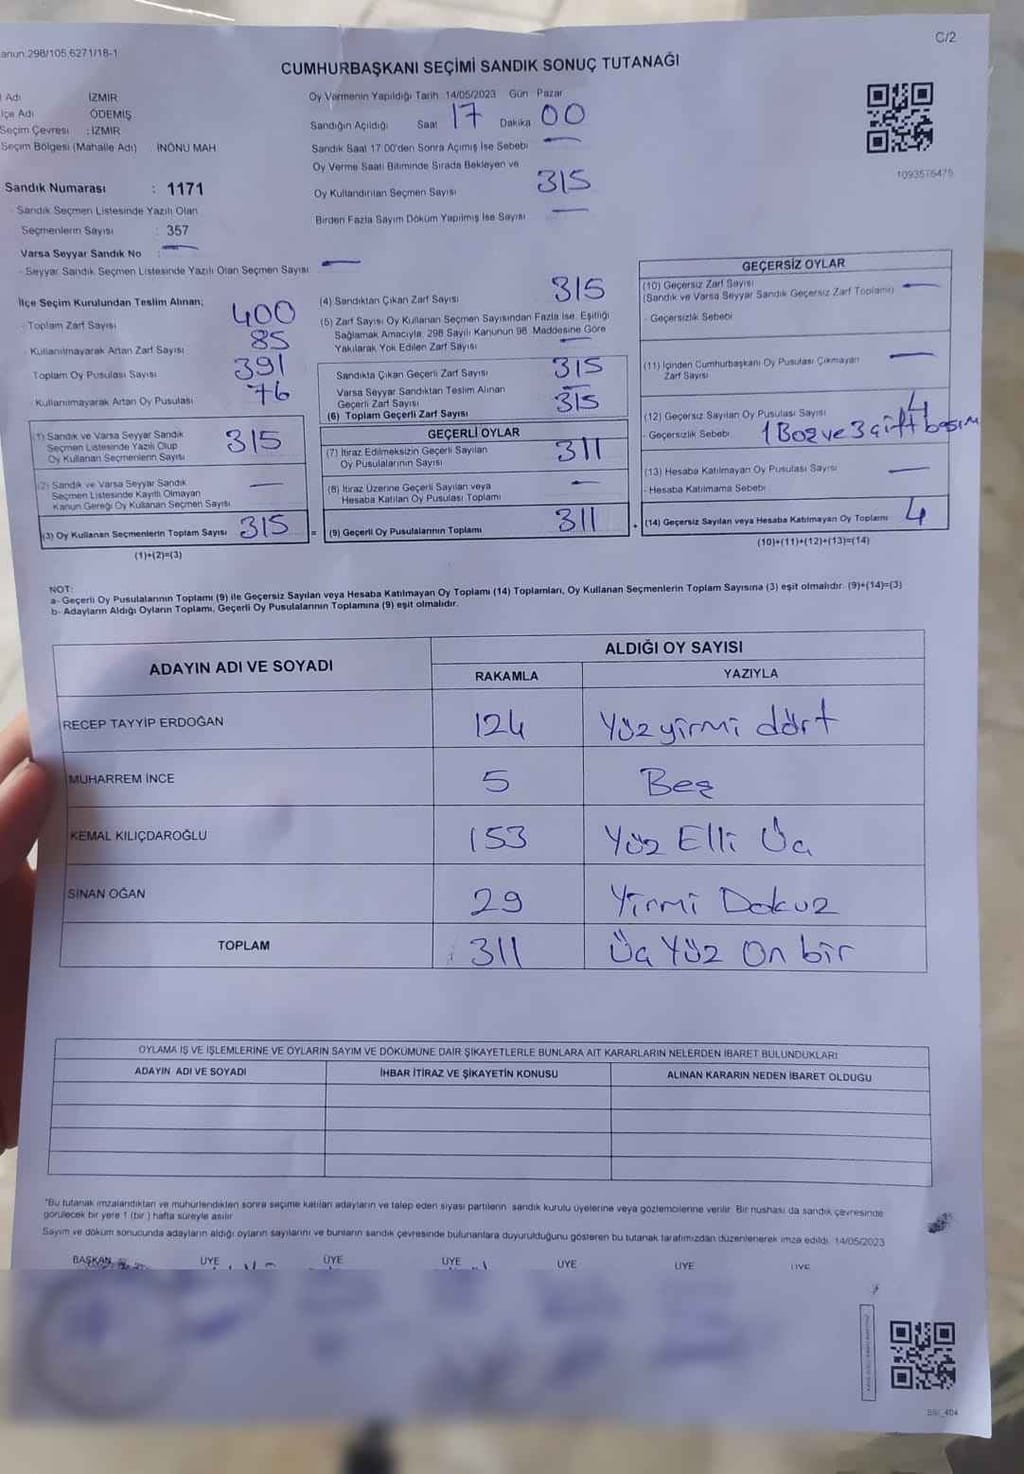 C/2
anun:298/105,6271/18-1
CUMHURBAŞKANI SEÇİMİ SANDIK SONUÇ TUTANAĞI
Adı İZMİR
İlçe Adı ÖDEMİŞ
Seçim Çevresi : İZMİR
Seçim Bölgesi (Mahalle Adı) İNÖNÜ MAH.
Sandık Numarası : 1171
- Sandık Seçmen Listesinde Yazılı Olan
Seçmenlerin Sayısı : 357
Varsa Seyyar Sandık No :
- Seyyar Sandık Seçmen Listesinde Yazılı Olan Seçmen Sayısı
Oy Vermenin Yapıldığı Tarih :14/05/2023 Gün Pazar
Sandığın Açıldığı Saat 17 Dakika 00
Sandık Saat 17:00'den Sonra Açılmış İse Sebebi
Oy Verme Saati Bitiminde Sırada Bekleyen ve
Oy Kullandırılan Seçmen Sayısı 315
Birden Fazla Sayım Döküm Yapılmış İse Sayısı
1093575475
İlçe Seçim Kurulundan Teslim Alınan;
- Toplam Zarf Sayısı 400
- Kullanılmayarak Artan Zarf Sayısı 85
Toplam Oy Pusulası Sayısı 391
- Kullanılmayarak Artan Oy Pusulası 76
(1) Sandık ve Varsa Seyyar Sandık
Seçmen Listesinde Yazılı Olup
Oy Kullanan Seçmenlerin Sayısı 315
(2) Sandık ve Varsa Seyyar Sandık
Seçmen Listesinde Kayıtlı Olmayan
Kanun Gereği Oy Kullanan Seçmen Sayısı
(3) Oy Kullanan Seçmenlerin Toplam Sayısı 315
(1)+(2)=(3)
(4) Sandıktan Çıkan Zarf Sayısı 315
(5) Zarf Sayısı Oy Kullanan Seçmen Sayısından Fazla İse, Eşitliği
Sağlamak Amacıyla, 298 Sayılı Kanunun 98. Maddesine Göre
Yakılarak Yok Edilen Zarf Sayısı
Sandıkta Çıkan Geçerli Zarf Sayısı 315
Varsa Seyyar Sandıktan Teslim Alınan
Geçerli Zarf Sayısı
(6) Toplam Geçerli Zarf Sayısı 315
GEÇERLİ OYLAR
(7) İtiraz Edilmeksizin Geçerli Sayılan
Oy Pusulalarının Sayısı 311
(8) İtiraz Üzerine Geçerli Sayılan veya
Hesaba Katılan Oy Pusulası Toplamı
= (9) Geçerli Oy Pusulalarının Toplamı 311
GEÇERSİZ OYLAR
(10) Geçersiz Zarf Sayısı
(Sandık ve Varsa Seyyar Sandık Geçersiz Zarf Toplamı)
- Geçersizlik Sebebi
(11) İçinden Cumhurbaşkanı Oy Pusulası Çıkmayan
Zarf Sayısı
(12) Geçersiz Sayılan Oy Pusulası Sayısı 4
- Geçersizlik Sebebi 1 Boş ve 3 çift basım
(13) Hesaba Katılmayan Oy Pusulası Sayısı
- Hesaba Katılmama Sebebi
+ (14) Geçersiz Sayılan veya Hesaba Katılmayan Oy Toplamı 4
(10)+(11)+(12)+(13)=(14)
NOT:
a- Geçerli Oy Pusulalarının Toplamı (9) ile Geçersiz Sayılan veya Hesaba Katılmayan Oy Toplamı (14) Toplamları, Oy Kullanan Seçmenlerin Toplam Sayısına (3) eşit olmalıdır. (9)+(14)=(3)
b- Adayların Aldığı Oyların Toplamı, Geçerli Oy Pusulalarının Toplamına (9) eşit olmalıdır.
ADAYIN ADI VE SOYADI ALDIĞI OY SAYISI
RAKAMLA YAZIYLA
RECEP TAYYİP ERDOĞAN 124 Yüz yirmi dört
MUHARREM İNCE 5 Beş
KEMAL KILIÇDAROĞLU 153 Yüz Elli Üç
SİNAN OĞAN 29 Yirmi Dokuz
TOPLAM 311 Üç Yüz On bir
OYLAMA İŞ VE İŞLEMLERİNE VE OYLARIN SAYIM VE DÖKÜMÜNE DAİR ŞİKAYETLERLE BUNLARA AİT KARARLARIN NELERDEN İBARET BULUNDUKLARI
ADAYIN ADI VE SOYADI İHBAR İTİRAZ VE ŞİKAYETİN KONUSU ALINAN KARARIN NEDEN İBARET OLDUĞU
"Bu tutanak imzalandıktan ve mühürlendikten sonra seçime katılan adayların ve talep eden siyasi partilerin sandık kurulu üyelerine veya gözlemcilerine verilir. Bir nüshası da sandık çevresinde
görülecek bir yere 1 (bir ) hafta süreyle asılır.
Sayım ve döküm sonucunda adayların aldığı oyların sayılarını ve bunların sandık çevresinde bulunanlara duyurulduğunu gösteren bu tutanak tarafımızdan düzenlenerek imza edildi. 14/05/2023
BAŞKAN ÜYE ÜYE ÜYE ÜYE ÜYE ÜYE